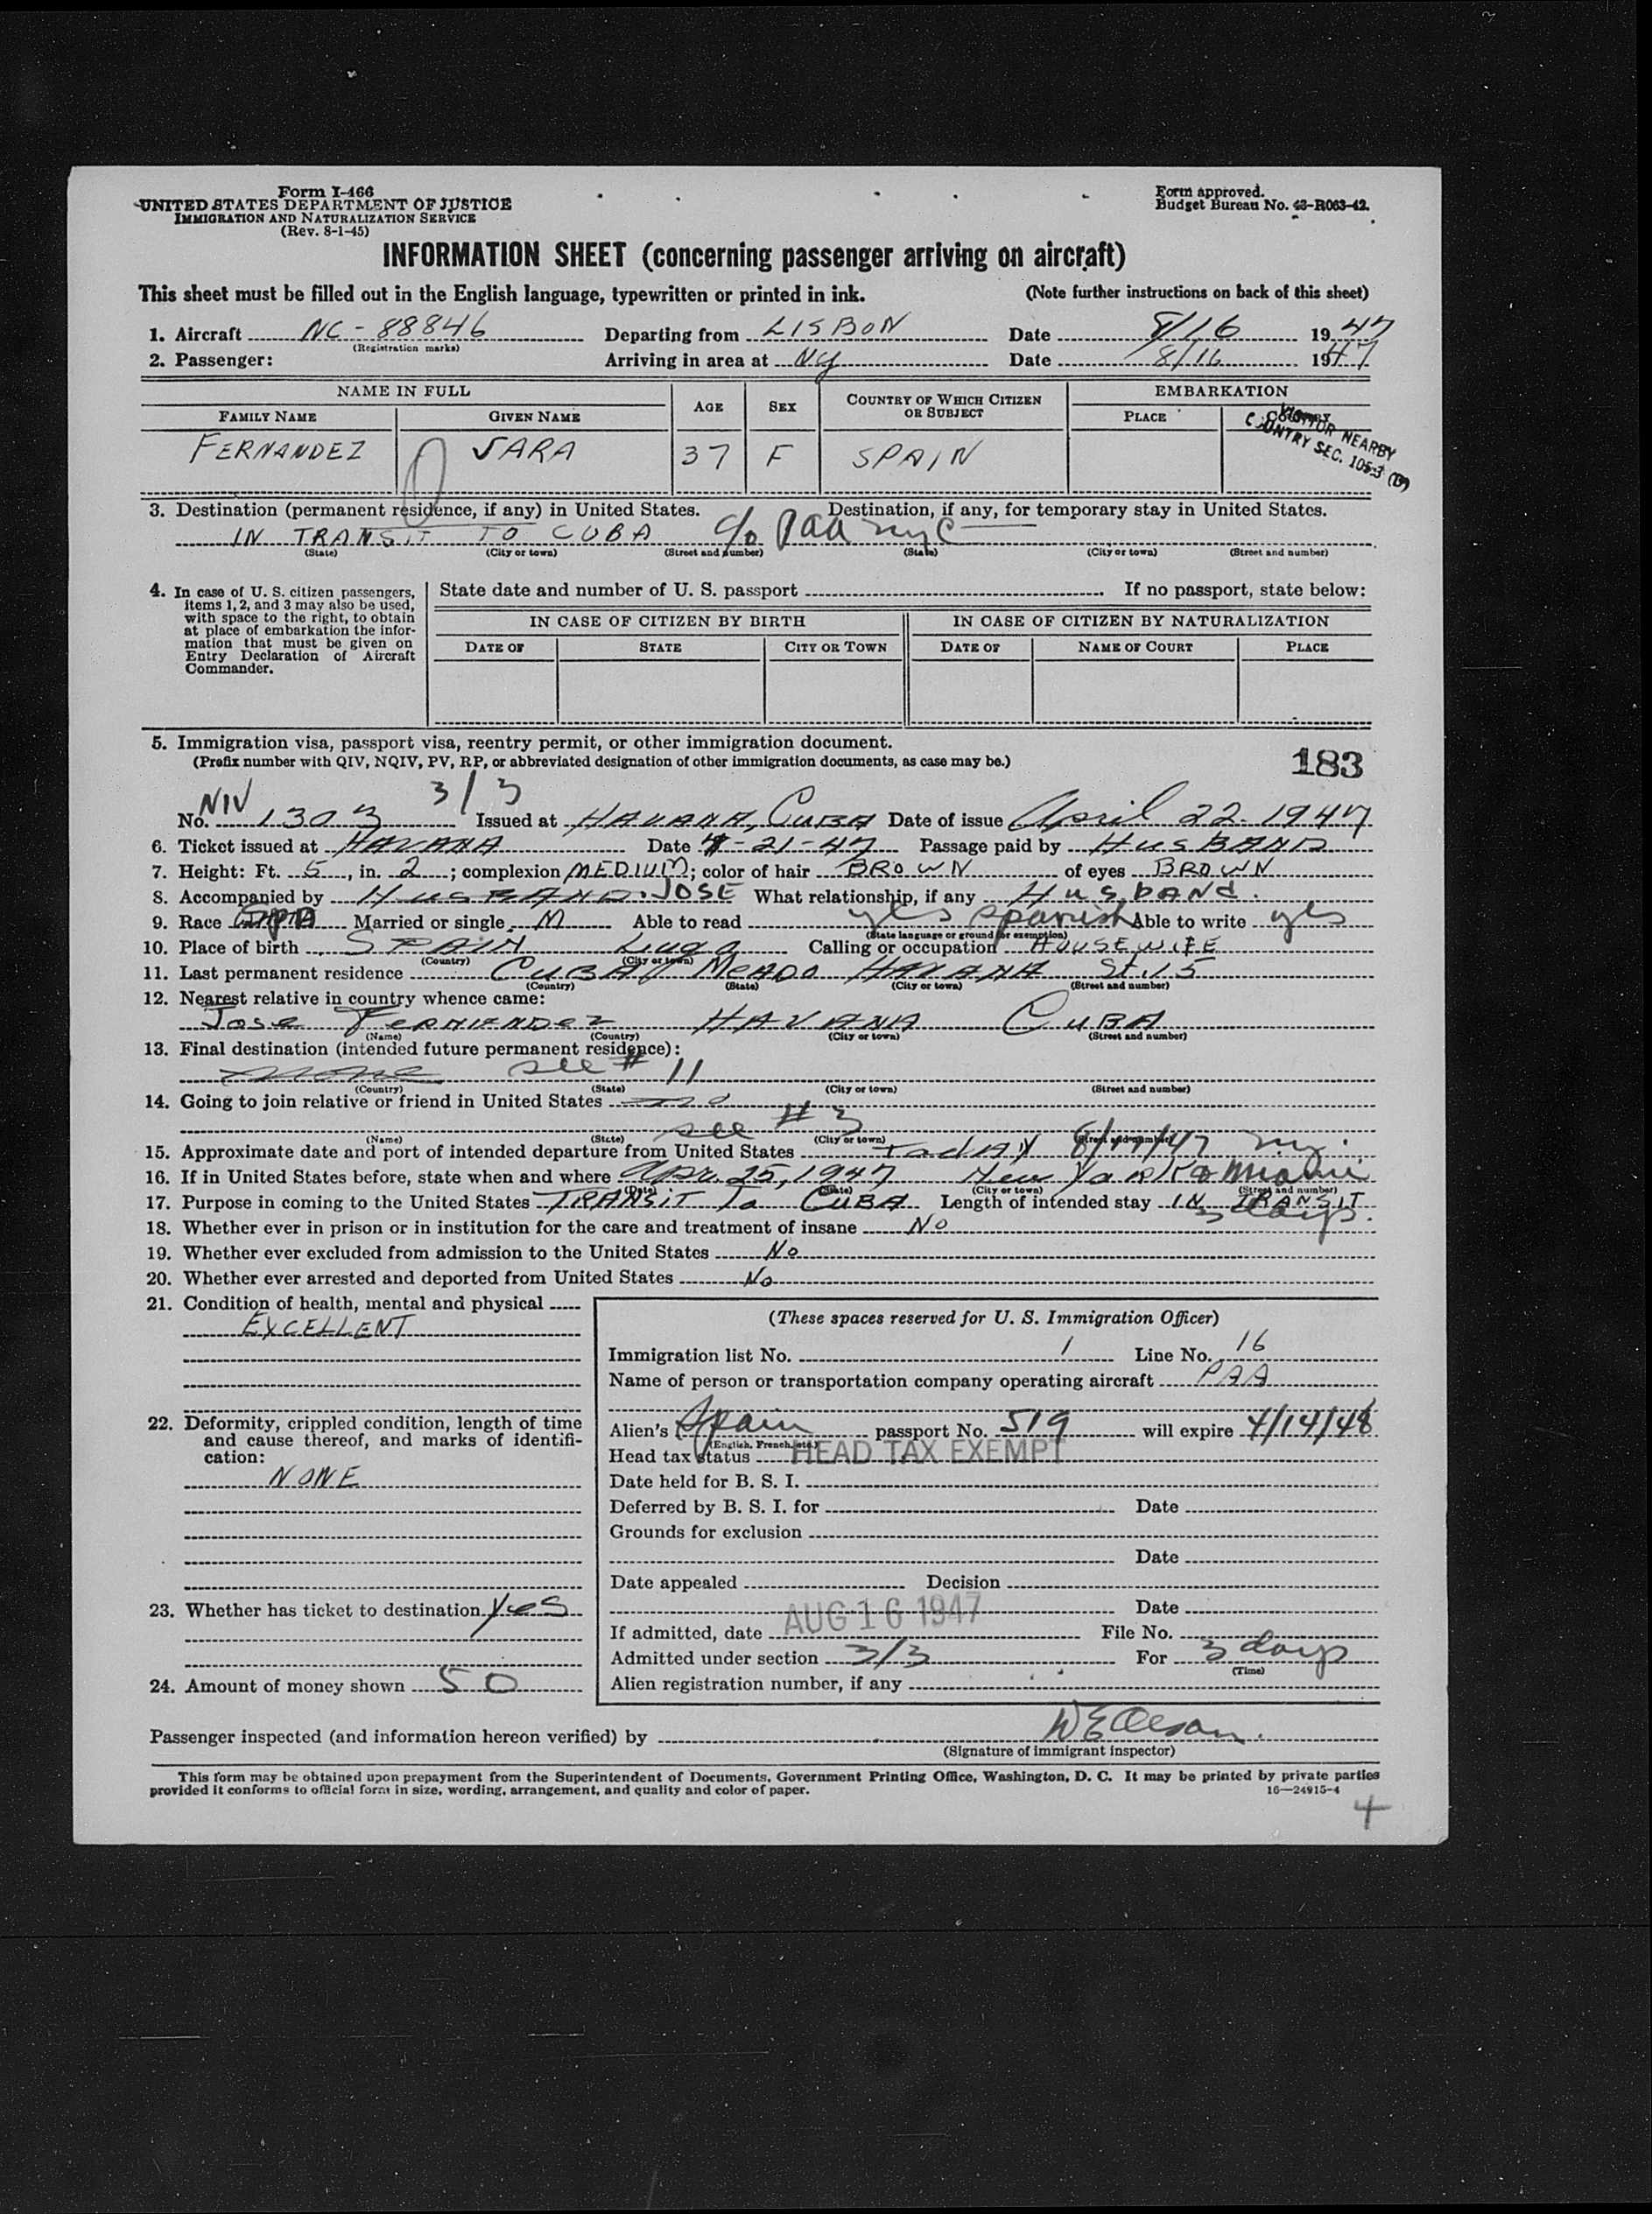 Form I-466
UNITED STATES DEPARTMENT OF JUSTICE
IMMIGRATION AND NATURALIZATION SERVICE
(Rev. 8-1-45)
Form approved.
Budget Bureau No. 43-R063-42.
INFORMATION SHEET (concerning passenger arriving on aircraft)
This sheet must be filled out in the English language, typewritten or printed in ink. (Note further instructions on back of this sheet)
1. Aircraft NC-88846 Departing from LISBON Date 8/16 1947
(Registration marks)
2. Passenger: Arriving in area at NY Date 8/16 1947
NAME IN FULL AGE SEX COUNTRY OF WHICH CITIZEN OR SUBJECT EMBARKATION
FAMILY NAME GIVEN NAME PLACE COUNTRY
VISITOR NEARBY
COUNTRY SEC. 105-3 (B)
FERNANDEZ SARA 37 F SPAIN
3. Destination (permanent residence, if any) in United States. Destination, if any, for temporary stay in United States.
IN TRANSIT TO CUBA c/o Paa nyc
(State) (City or town) (Street and number) (State) (City or town) (Street and number)
4. In case of U. S. citizen passengers, items 1, 2, and 3 may also be used, with space to the right, to obtain at place of embarkation the information that must be given on Entry Declaration of Aircraft Commander.
State date and number of U. S. passport If no passport, state below:
IN CASE OF CITIZEN BY BIRTH IN CASE OF CITIZEN BY NATURALIZATION
DATE OF STATE CITY OR TOWN DATE OF NAME OF COURT PLACE
5. Immigration visa, passport visa, reentry permit, or other immigration document.
(Prefix number with QIV, NQIV, PV, RP, or abbreviated designation of other immigration documents, as case may be.)
183
NIV 3/3
No. 1303 Issued at HAVANA, CUBA Date of issue April 22. 1947
6. Ticket issued at HAVANA Date 4-21-47 Passage paid by HUSBAND
7. Height: Ft. 5, in. 2; complexion MEDIUM; color of hair BROWN of eyes BROWN
8. Accompanied by HUSBAND. JOSE What relationship, if any Husband.
9. Race Married or single M Able to read yes spanish Able to write yes
(State language or ground for exemption)
10. Place of birth SPAIN Lugo Calling or occupation HOUSEWIFE
(Country) (City or town)
11. Last permanent residence CUBA HAVANA St. 15
(Country) (State) (City or town) (Street and number)
12. Nearest relative in country whence came:
Jose FERNANDEZ HAVANA CUBA
(Name) (Country) (City or town) (Street and number)
13. Final destination (intended future permanent residence):
none see # 11
(Country) (State) (City or town) (Street and number)
14. Going to join relative or friend in United States no
see # 3
(Name) (State) (City or town) (Street and number)
15. Approximate date and port of intended departure from United States TODAY 8/17/47 ny.
16. If in United States before, state when and where Apr. 25, 1947 New York & Miami
(Date) (State) (City or town) (Street and number)
17. Purpose in coming to the United States TRANSIT To CUBA Length of intended stay IN TRANSIT
3 days.
18. Whether ever in prison or in institution for the care and treatment of insane No
19. Whether ever excluded from admission to the United States No
20. Whether ever arrested and deported from United States No
21. Condition of health, mental and physical
EXCELLENT
22. Deformity, crippled condition, length of time and cause thereof, and marks of identification:
NONE
23. Whether has ticket to destination Yes
24. Amount of money shown 50
(These spaces reserved for U. S. Immigration Officer)
Immigration list No. 1 Line No. 16
Name of person or transportation company operating aircraft PAA
Alien's Spain passport No. 519 will expire 4/14/48
(English, French, etc.)
Head tax status HEAD TAX EXEMPT
Date held for B. S. I.
Deferred by B. S. I. for Date
Grounds for exclusion
Date
Date appealed Decision
Date
If admitted, date AUG 16 1947 File No.
Admitted under section 3/3 For 3 days
(Time)
Alien registration number, if any
Passenger inspected (and information hereon verified) by W E Olson.
(Signature of immigrant inspector)
This form may be obtained upon prepayment from the Superintendent of Documents, Government Printing Office, Washington, D. C. It may be printed by private parties
provided it conforms to official form in size, wording, arrangement, and quality and color of paper. 16—24915-4
4